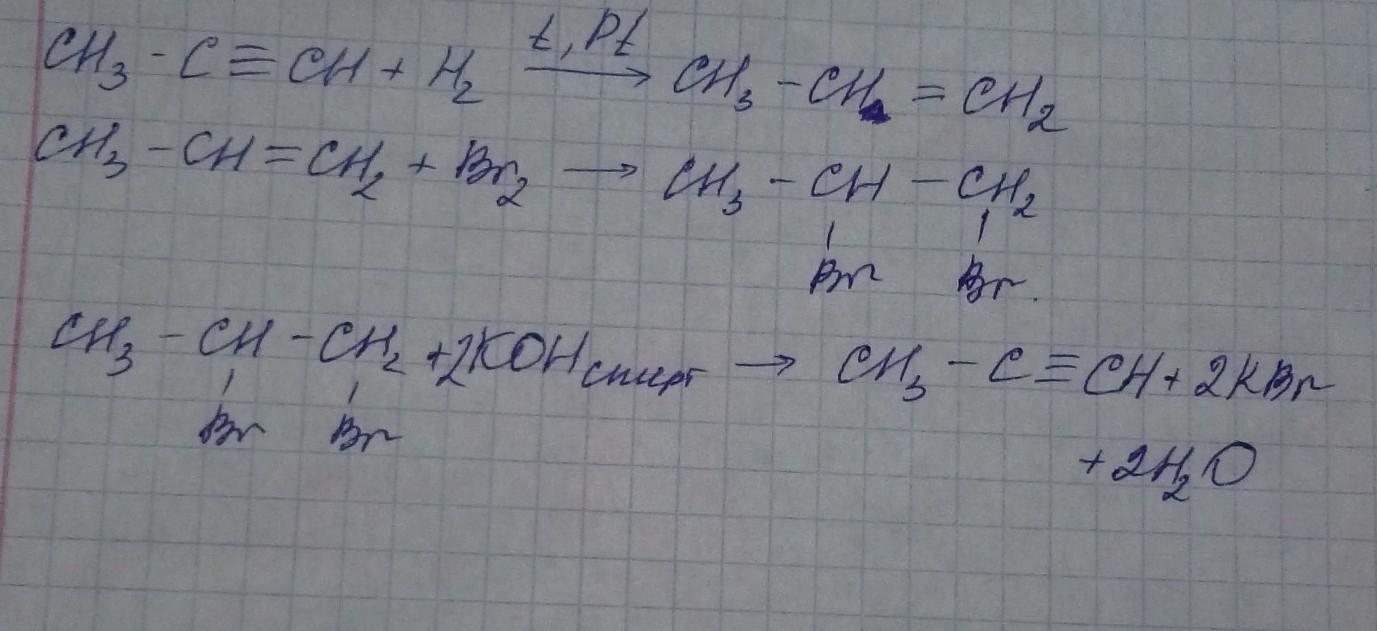 CH₃ - C ≡ CH + H₂ t, Pt → CH₃ - CH = CH₂
CH₃ - CH = CH₂ + Br₂ → CH₃ - CH - CH₂
Br Br.
CH₃ - CH - CH₂ + 2KOH спирт → CH₃ - C ≡ CH + 2KBr
Br Br
+ 2H₂O